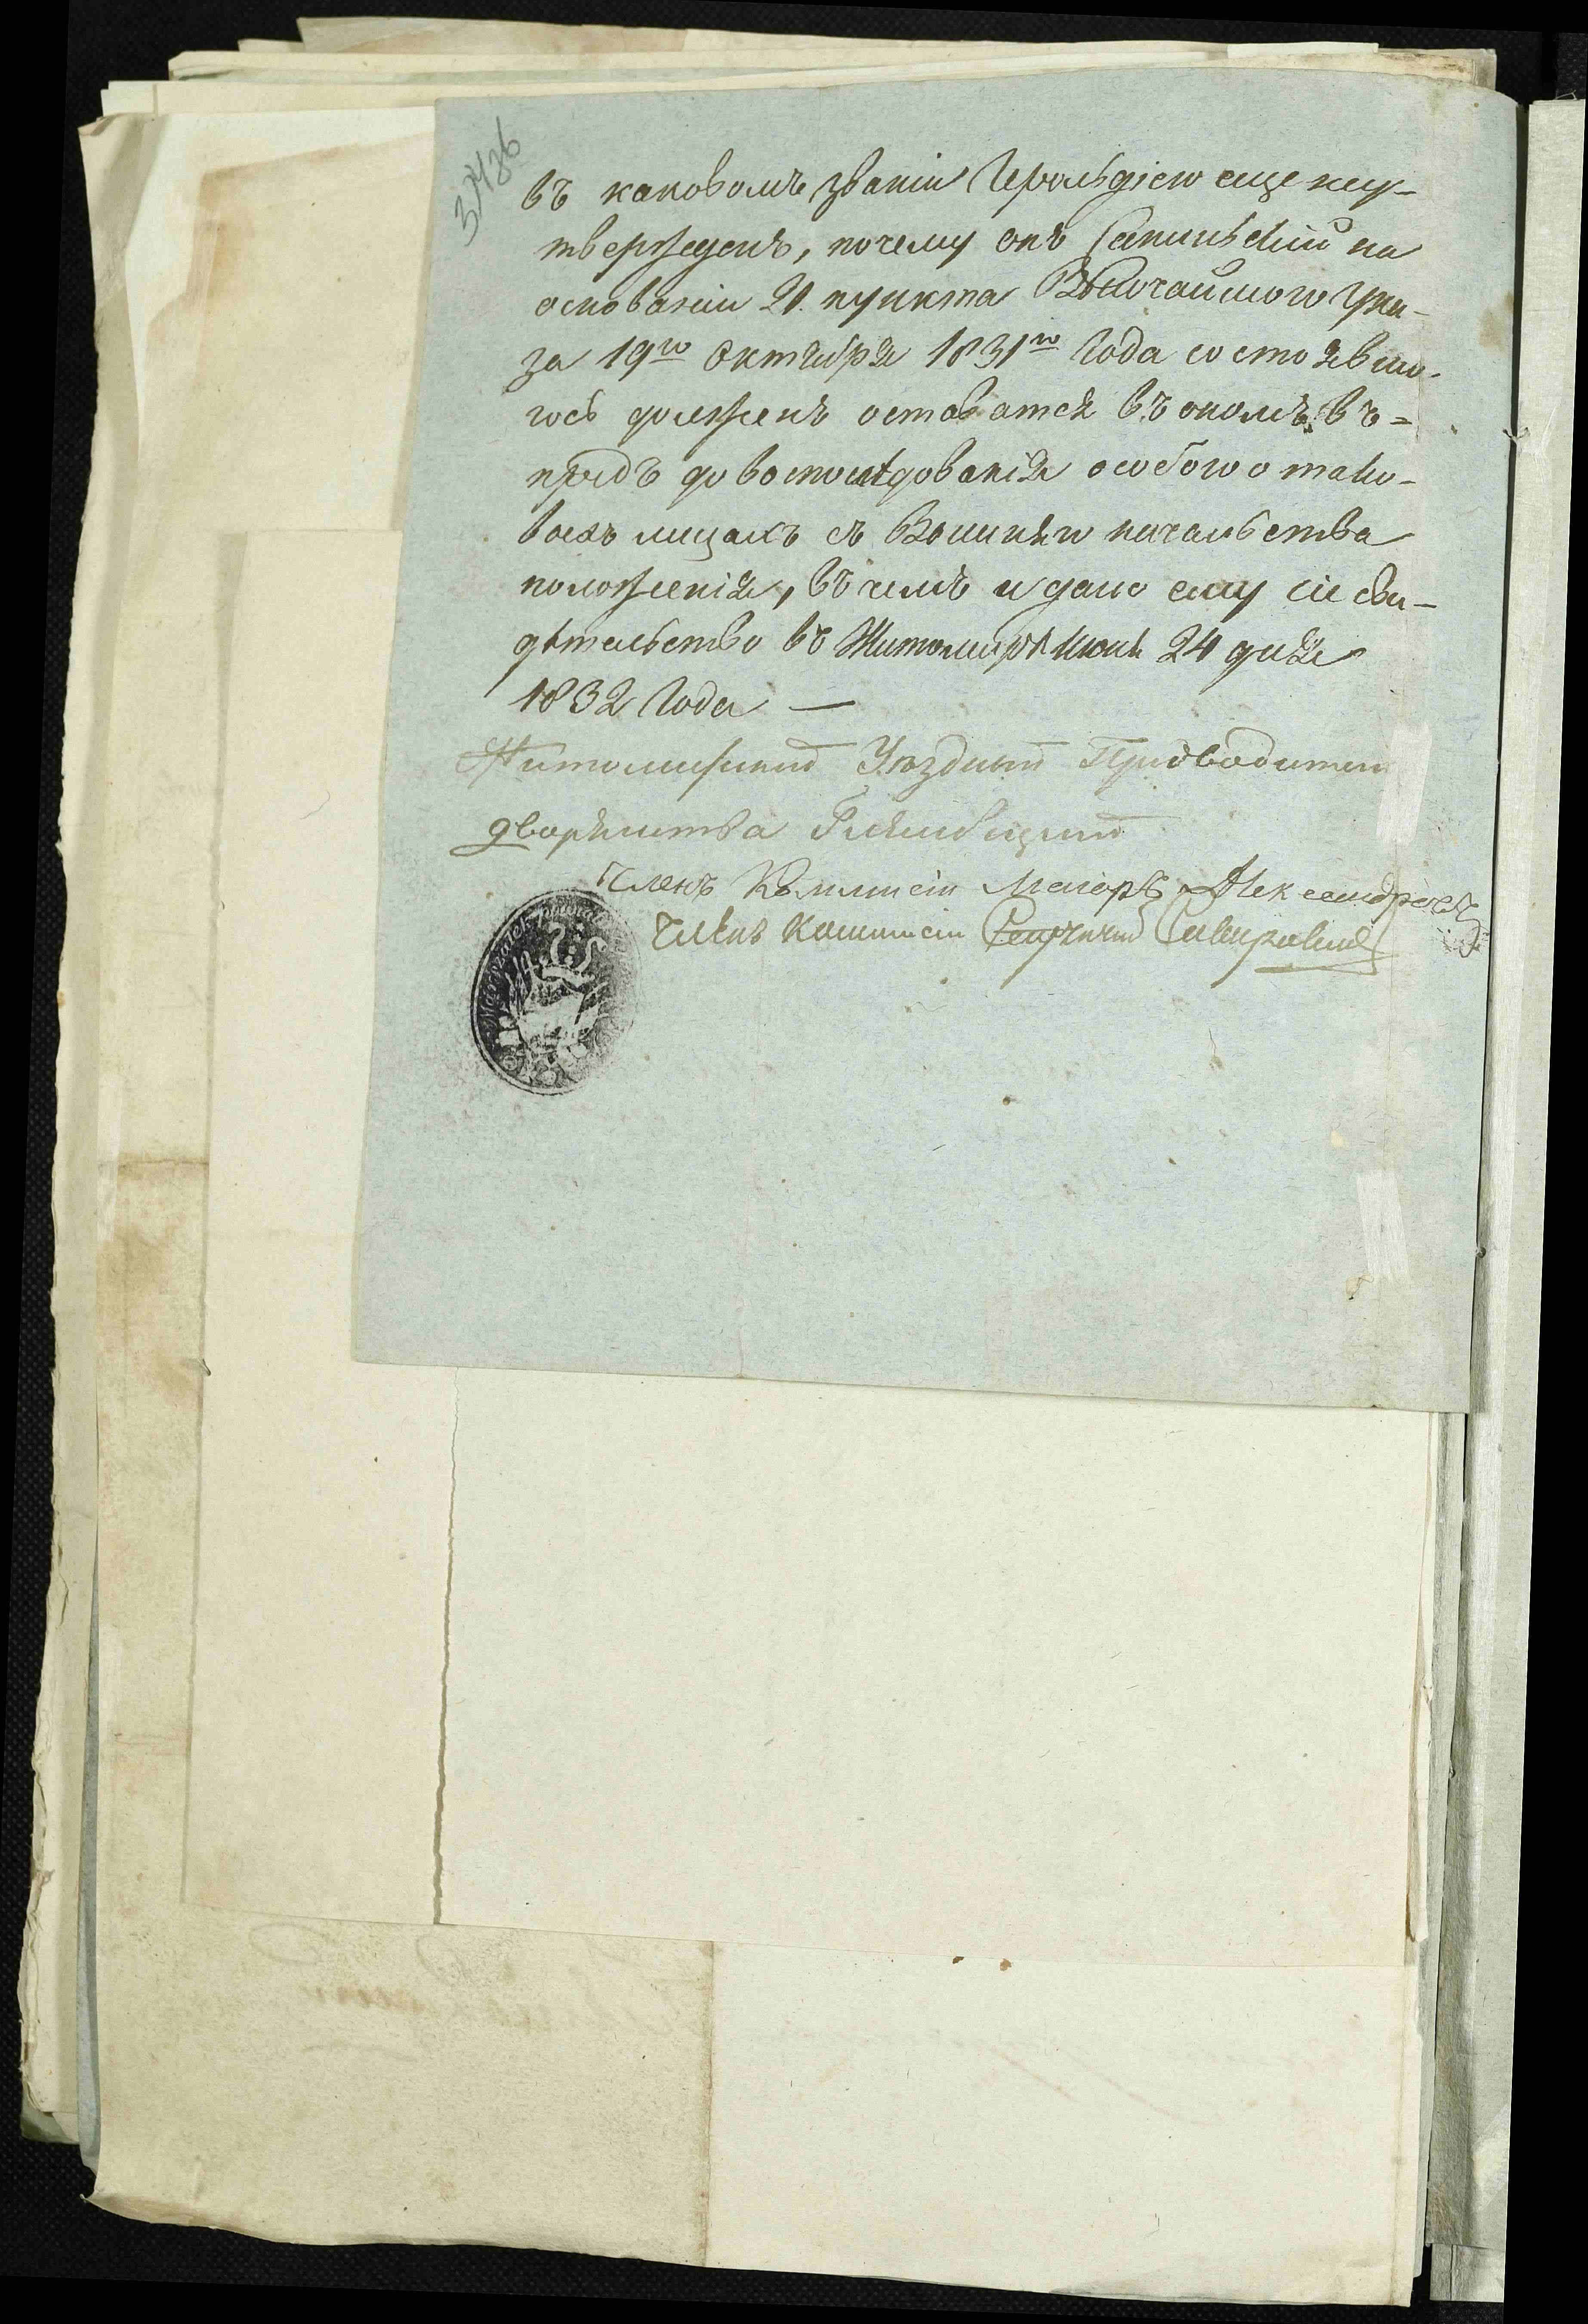 въ каковомъ званіи Герольдіею еще неу-
твержденъ, почему онъ на
основаніи 21. пункта Высочайшого Ука-
за 19го Октября 1831го Года состоявшо-
гось долженъ оставатся въ ономъ въ=
предь до воспослѣдованія особого о тако-
выхъ лицахъ съ Вышняго начальства
положенія, въ чемъ и дано ему сіе сви-
дѣтельство въ Житомирѣ Июня 24 дня
1832 Года —
Житомирский Уездный Предводитель
дворянства
Членъ Коммисіи Маіоръ
Членъ Коммисіи